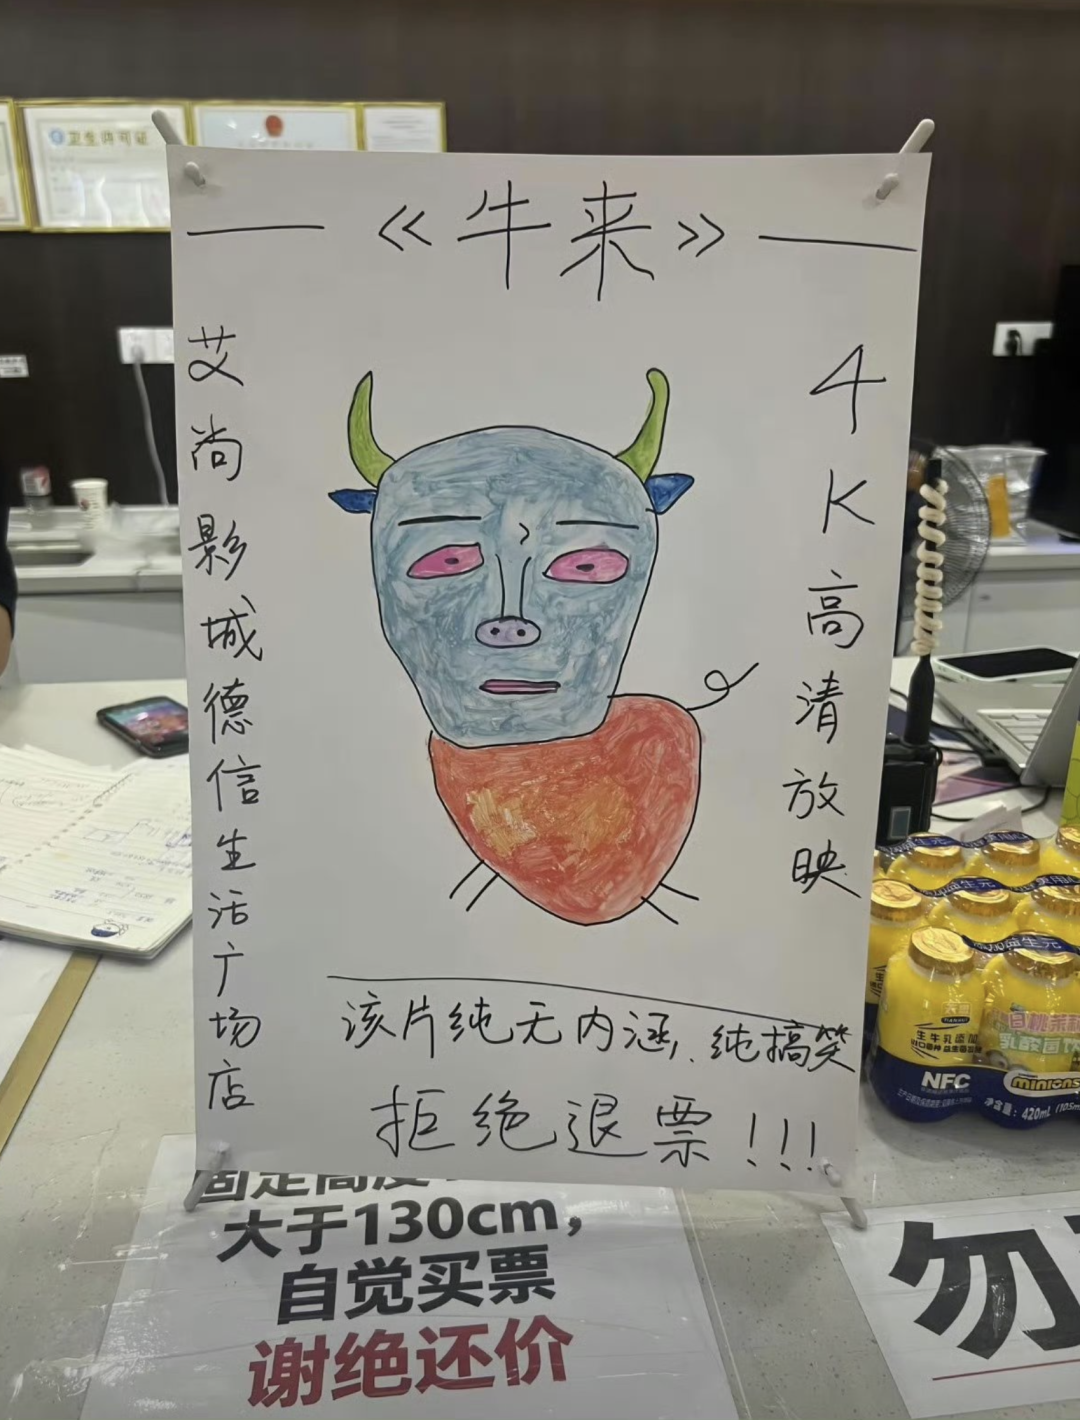 卫生许可证
《牛来》
艾尚影城德信生活广场店
4K高清放映
该片纯无内涵，纯搞笑
拒绝退票!!!
固定高度
大于130cm，
自觉买票
谢绝还价
勿
生牛乳添加
NFC
白桃茉莉
乳酸菌饮
minions
净含量：420mL